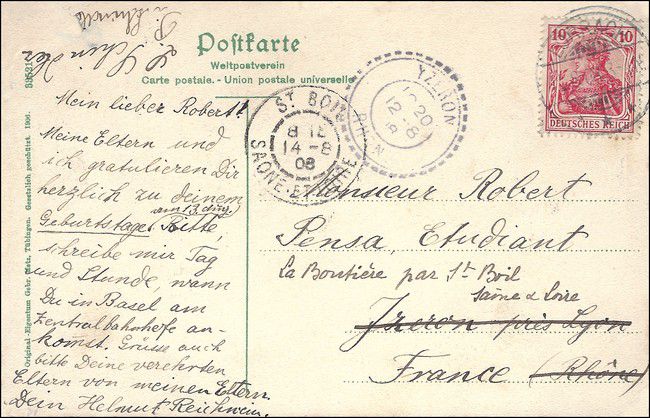 Postkarte
Weltpostverein
Carte postale. - Union postale universelle
Mein lieber Robert!
Meine Eltern und
ich gratulieren Dir
herzlich zu deinem
am 13. Aug.
Geburtstage! Bitte,
schreibe mir Tag
und Stunde, wann
Du in Basel am
Zentralbahnhofe an-
komst. Grüsse auch
bitte Deine verehrten
Eltern von meinen Eltern.
Dein Helmut Reichwein.
YZERON
12-8
RHÔNE
ST BOIL
14-8
08
SAÔNE-ET-LOIRE
10 10
DEUTSCHES REICH
Monsieur Robert
Pensa, Etudiant
La Boutière par St Boil
Saône & Loire
Izeron près Lyon
France (Rhône)
Original-Eigentum Gebr. Metz, Tübingen. Gesetzlich geschützt. 1906.